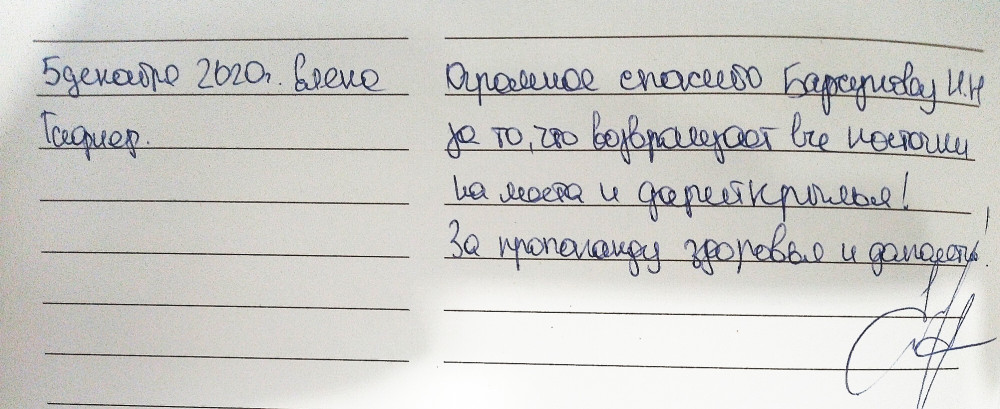 5 декабря 2020г. Елена
Гаднер.
Огромное спасибо Баржунову И.Н
за то, что возвращает все косточки
на места и дарит крылья!
За пропаганду здоровья и